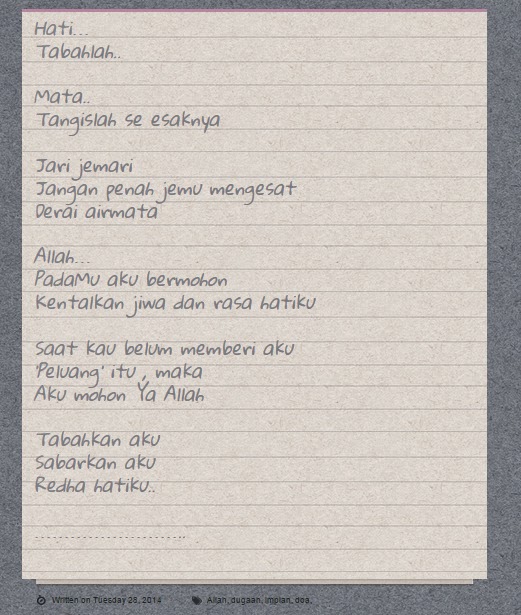 Hati...
Tabahlah..
Mata..
Tangislah se esaknya
Jari jemari
Jangan penah jemu mengesat
Derai airmata
Allah...
PadaMu aku bermohon
Kentalkan jiwa dan rasa hatiku
Saat kau belum memberi aku
'Peluang' itu , maka
Aku mohon Ya Allah
Tabahkan aku
Sabarkan aku
Redha hatiku..
...........................
Written on Tuesday 28, 2014
Allah, dugaan, impian, doa,